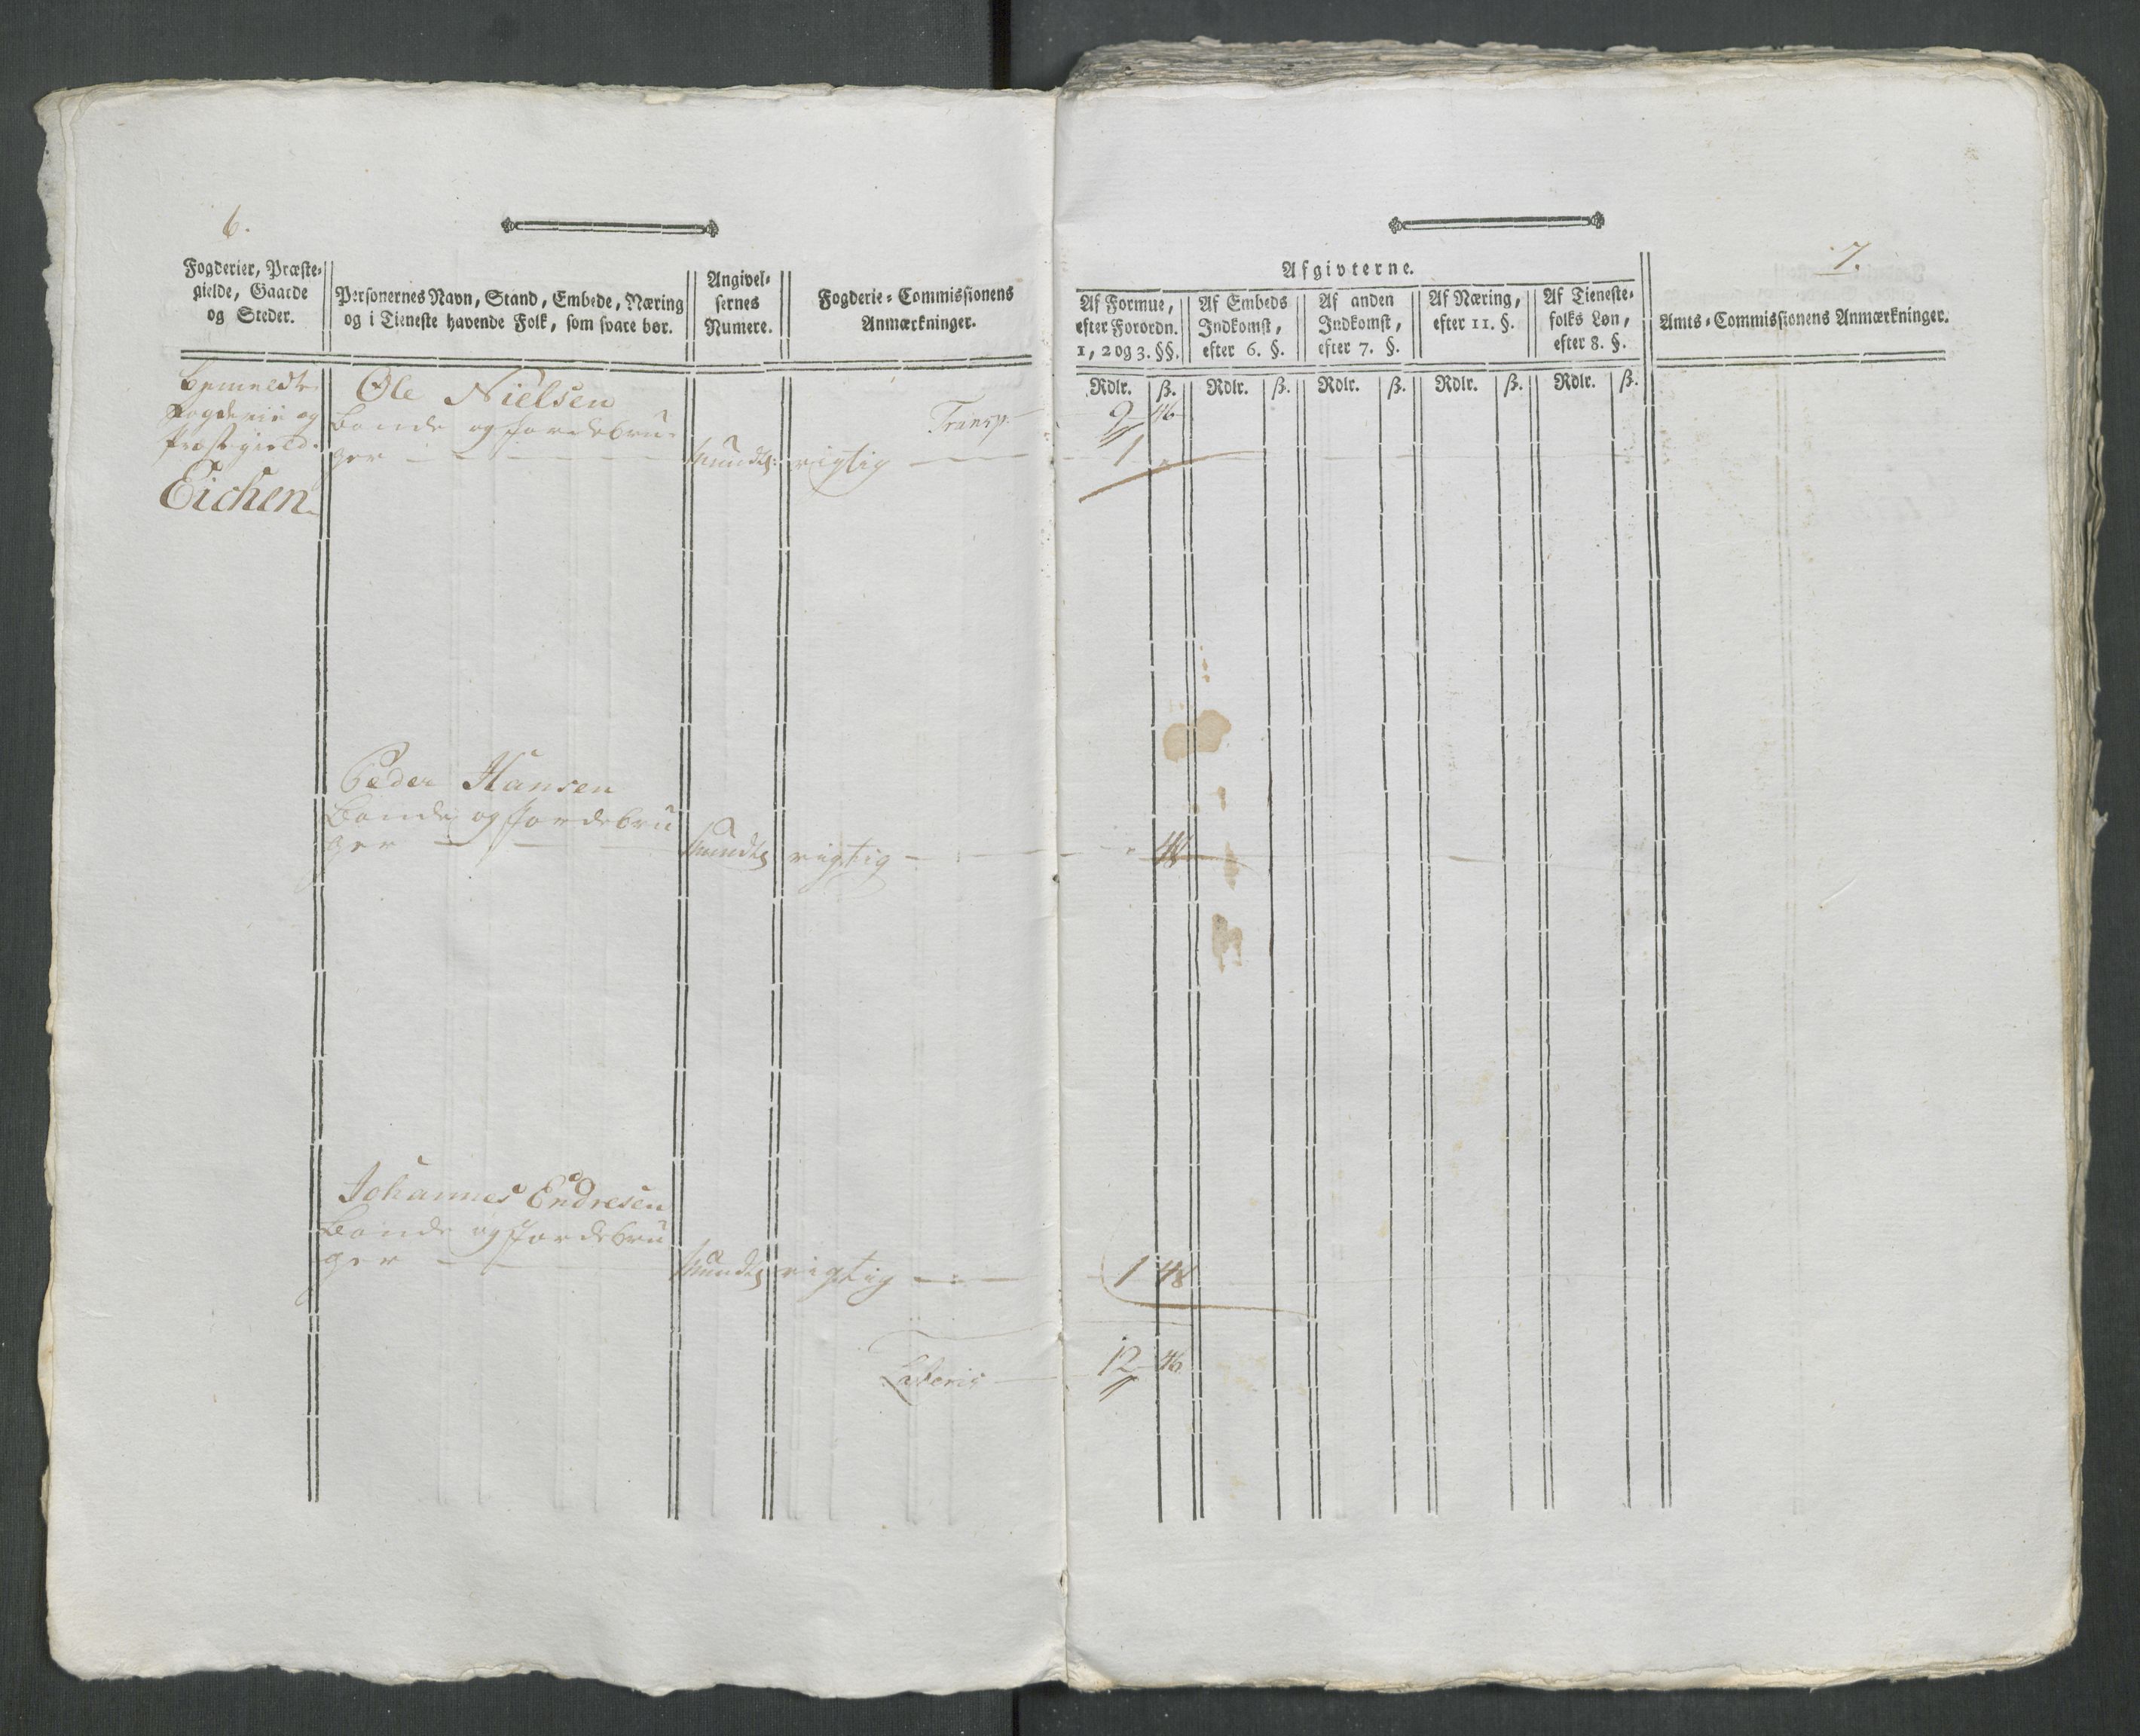 6.
Fogderier, Præste-
gielde, Gaarde
og Steder.
Personernes Navn, Stand, Embede, Næring
og i Tieneste havende Folk, som svare bør.
Angivel-
sernes
Numere.
Fogderie-Commissionens
Anmærkninger.
Bemeldte
Fogderie og
Præstegield.
Eichen
Ole Nielsen
Bonde og Jordebru-
ger
Mundtl:
rigtig
Transp.
Peder Hansen
Bonde og Jordebru
ger
Mundtl
rigtig
Johannes Endresen
Bonde og Jordebru
ger
Mundtl
rigtig
Lateris
7.
Afgivterne.
Af Formue,
efter Forordn.
1, 2 og 3. §§.
Af Embeds
Indkomst,
efter 6. §.
Af anden
Indkomst,
efter 7. §.
Af Næring,
efter 11. §.
Af Tieneste-
folks Løn,
efter 8. §.
Amts-Commissionens Anmærkninger.
Rdlr. ß. Rdlr. ß. Rdlr. ß. Rdlr. ß. Rdlr. ß.
9 46
1
48
1 48
12 46